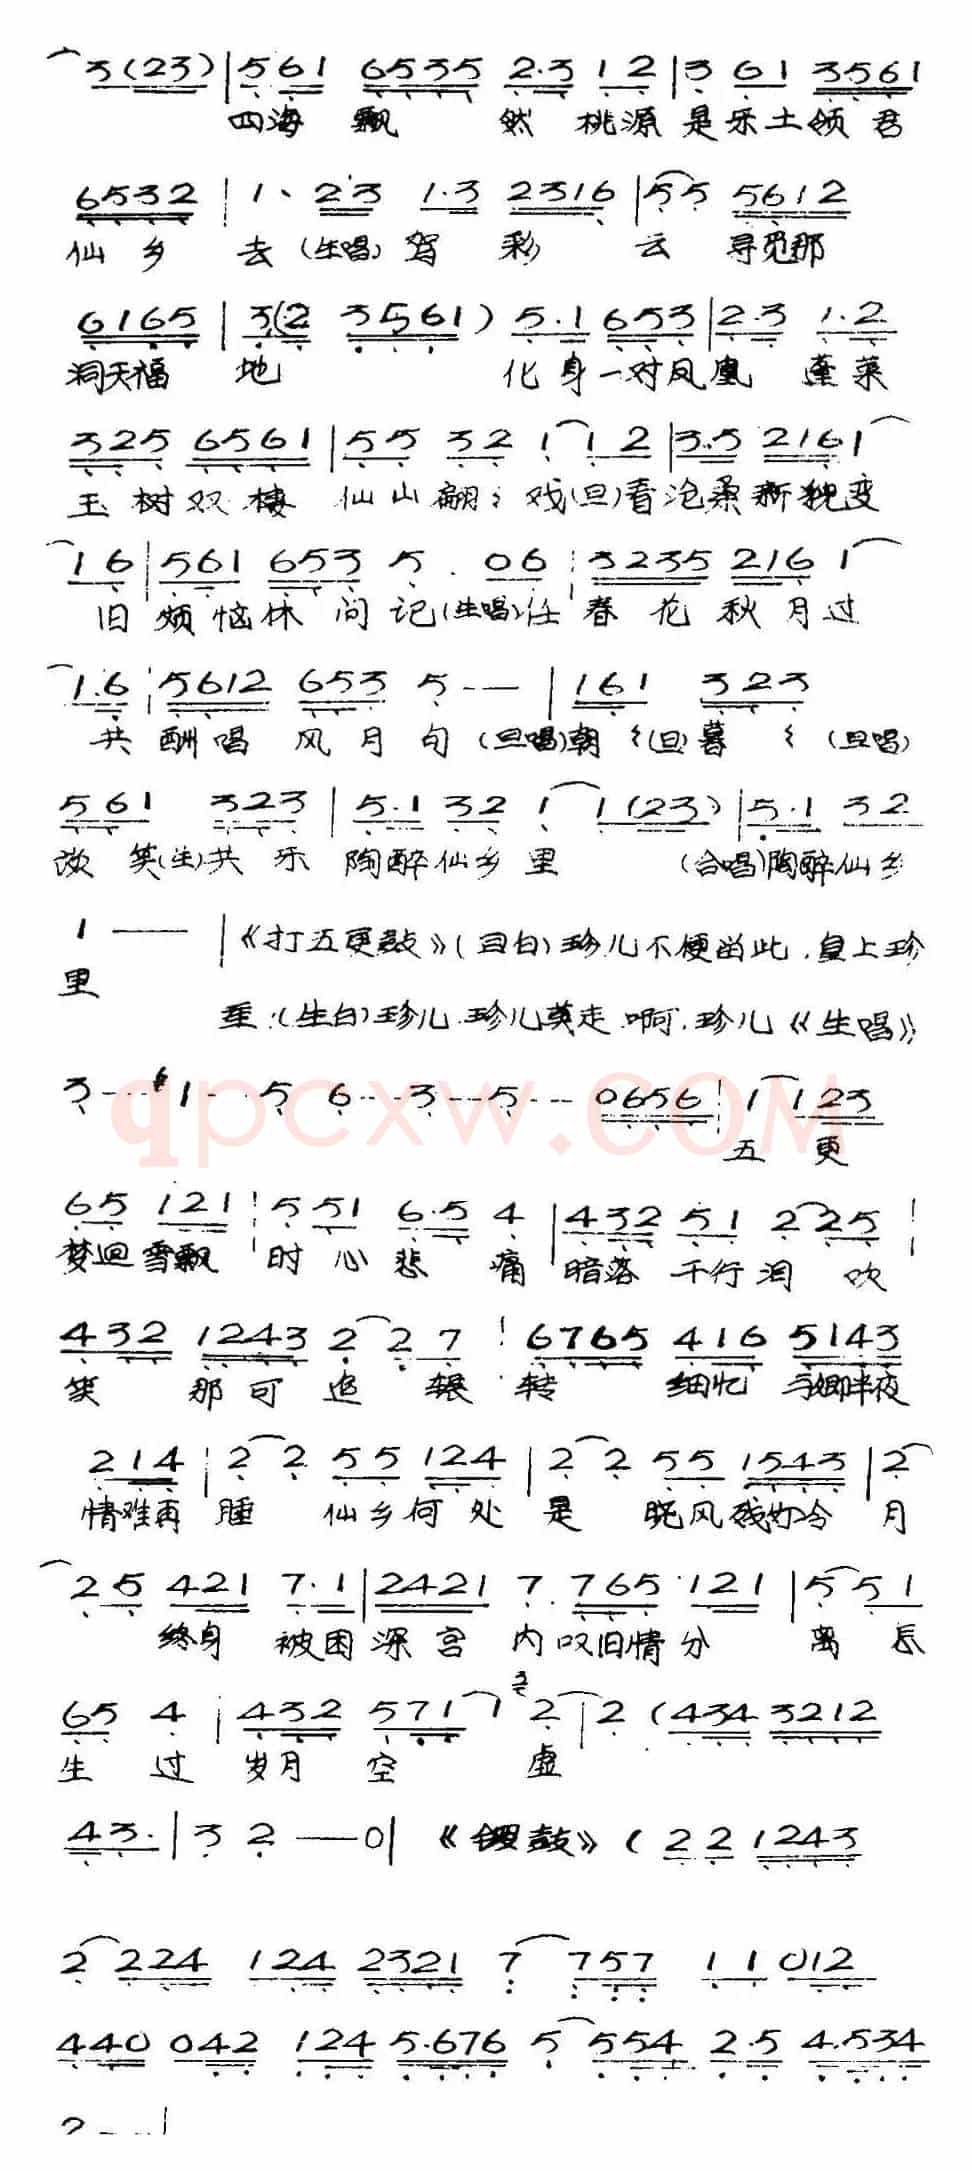 3(23)|561 6535 2·3 1 2|3 61 3561
四海 飘 然 桃源 是乐土领君
6532 | 1、 23 1·3 2316 | 55 5612
仙乡 去(生唱)驾 彩 云 寻觅那
6165 | 3(2 3561) 5·1 653|2·3 1·2
洞天福 地 化身一对凤凰 蓬莱
325 6561 | 55 32 1 1 2 |3·5 2161
玉树双棲 仙山翩〻戏(旦)看沧桑新貌变
16|561 653 5· 06 | 3235 216 1
旧烦恼休问记(生唱)任春花秋月过
1·6 | 5612 653 5-- | 161 323
共酬唱风月句(旦唱)朝〻(旦)暮〻(旦唱)
561 323 | 5·1 32 1 1(23) | 5·1 32
欢笑(生)共乐陶醉仙乡里 (合唱)陶醉仙乡
1 —— |《打五更鼓》(旦白)珍儿不便留此,皇上珍
里
重.(生白)珍儿.珍儿莫走.啊,珍儿《生唱》
3--- 1-- 5 6---3---5--- 0656 | 1 123
qpcxw.COM
五更
65 121 | 5 51 6·5 4 | 432 51 2 25 |
梦迴雪飘 时心悲痛 暗落千行泪 欢
432 1243 2 2 7 | 6765 416 5143
笑 那可追 辗转 细忆与卿半夜
214 | 2 2 55 124 | 2 2 55 1543 | 2
情难再 腫 仙乡何处是 晓风残 冷月
25 421 7·1|2421 7 765 121 | 5 51
终身 被困深宫 内叹旧情分 离 长
65 4 | 432 571 1 2 | 2 (434 3212
生过 岁月空 虚
43·| 3 2 —0| 《锣鼓》( 22 1243
2 224 124 2321 7 757 11 012
440 042 124 5·676 5 554 2·5 4·534
2--|